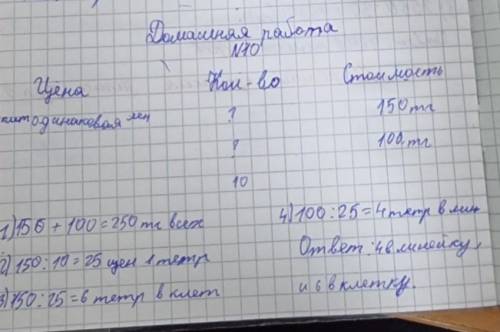 Домашняя работа
N10
Цена Кол-во Стоимость
одинаковая ? 150 тг
? 100 тг
10
1) 150 + 100 = 250 тг всех
2) 150 : 10 = 25 цен 1 тетр
3) 150 : 25 = 6 тетр в клет
4) 100 : 25 = 4 тетр в лин
Ответ: 4 в линейку,
и 6 в клетку.